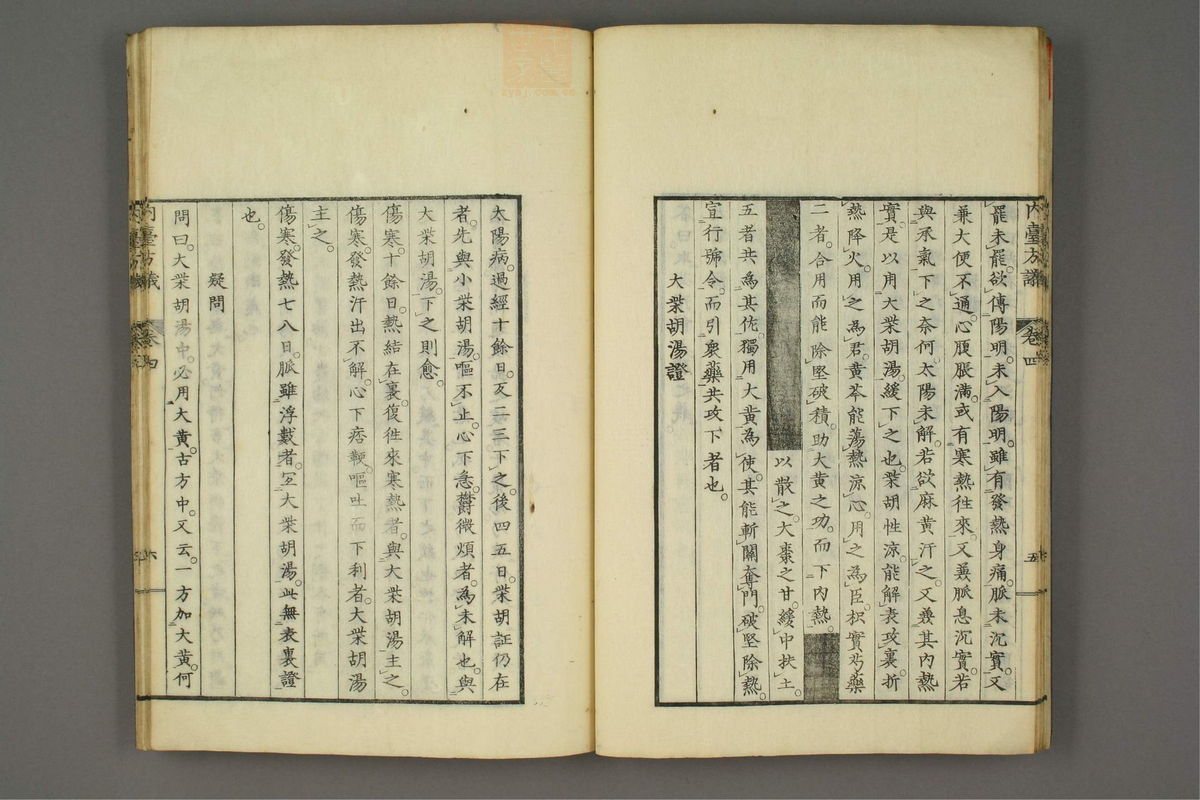 內臺方議 卷四 五
罷未罷欲傳陽明未入陽明雖有發熱身痛脈未沉實又
兼大便不通心腹脹滿或有寒熱徃來又兼脈息沉實若
與承氣下之奈何太陽未解若欲麻黃汗之又兼其內熱
實是以用大柴胡湯緩下之也柴胡性涼能解表攻裏折
熱降火用之為君黃芩能蕩熱涼心用之為臣枳實芍藥
二者合用而能除堅破積助大黃之功而下內熱
以散之大棗之甘緩中扶土
五者共為其佐獨用大黃為使其能斬關奪門破堅除熱
宜行號令而引衆藥共攻下者也
大柴胡湯證
太陽病過經十餘日反二三下之後四五日柴胡証仍在
者先與小柴胡湯嘔不止心下急鬱微煩者為未解也與
大柴胡湯下之則愈
傷寒十餘日熱結在裏復徃來寒熱者與大柴胡湯主之
傷寒發熱汗出不解心下痞鞕嘔吐而下利者大柴胡湯
主之
傷寒發熱七八日脈雖浮數者宜大柴胡湯此無表裏證
也
疑問
問曰大柴胡湯中必用大黃古方中又云一方加大黃何
內臺方議 卷四 六